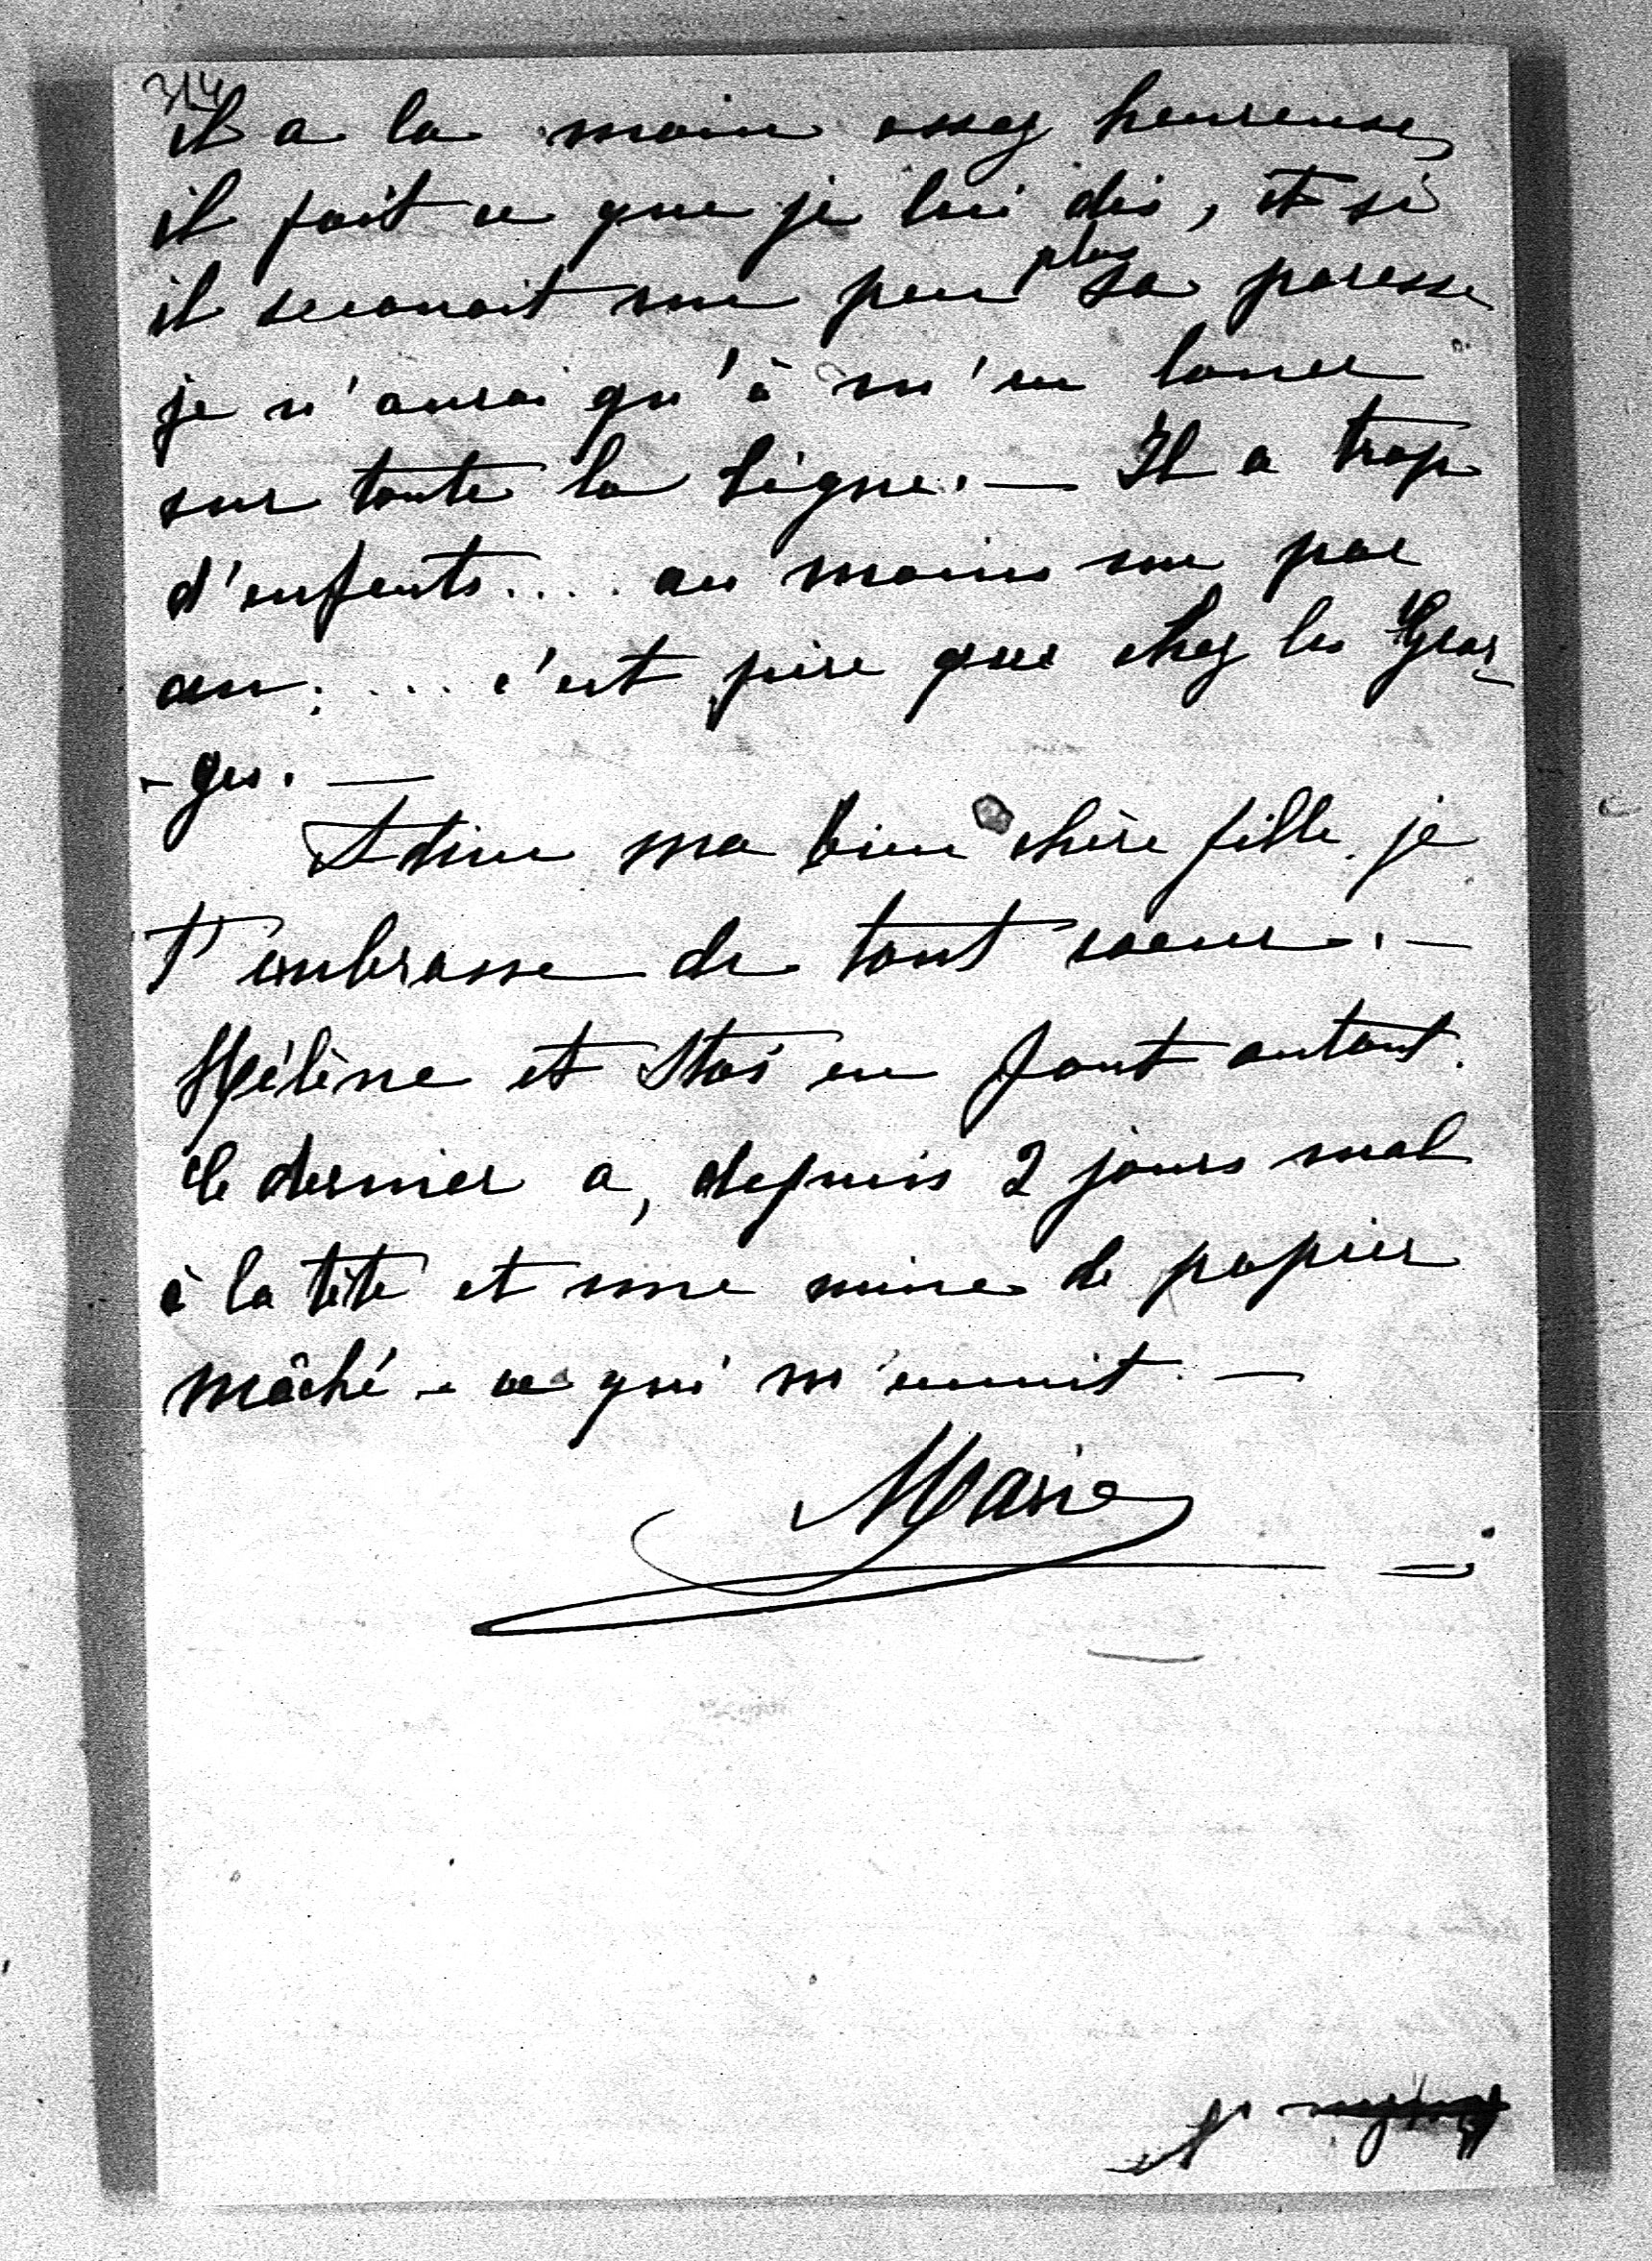 314
il a la main assez heureuse,
il fait ce que je lui dis, et si
il secouait un peu plus sa paresse
je n'aurai qu'à m'en louer
sur toute la ligne. — Il a trop
d'enfants.... au moins un par
an;... c'est pire que chez les
- ges. —
Adieu ma bien chère fille. je
t'embrasse de tout coeur. —
Hélène et Staś en font autant.
Ce dernier a, depuis 2 jours mal
à la tête et une mine de papier
mâché - ce qui m'ennuit. —
Marie